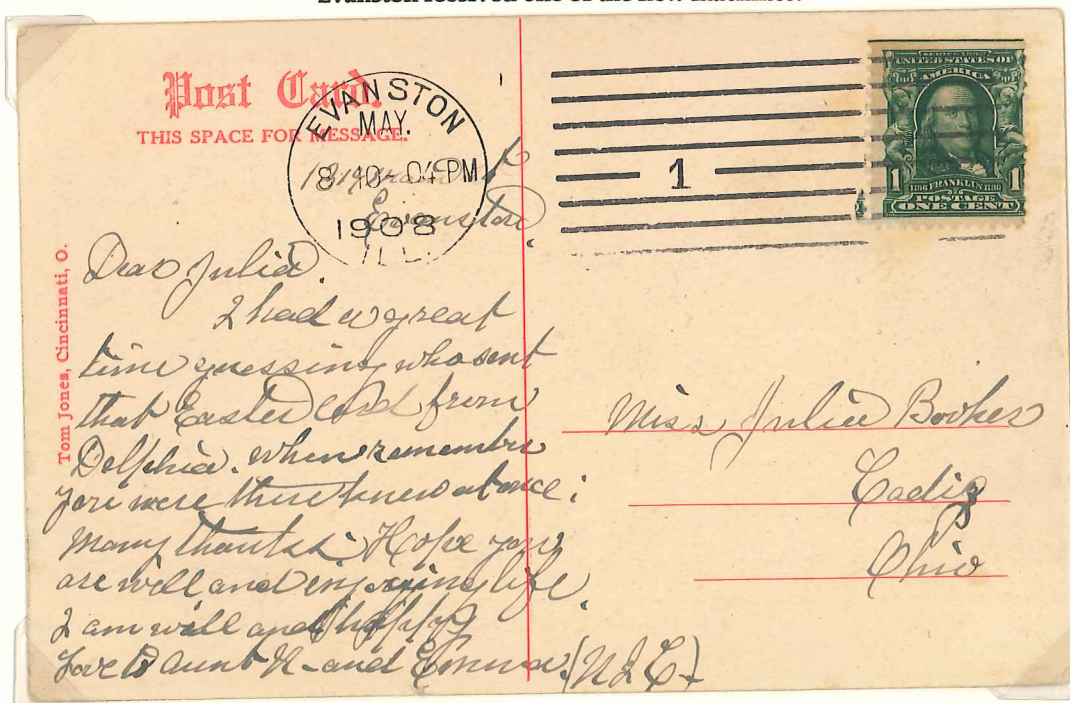 Evanston received one of the new machines.
Post Card.
THIS SPACE FOR MESSAGE.
EVANSTON
MAY.
8 10-04 PM
1908
ILL.
1
SERIES 1902
UNITED STATES OF
AMERICA
1 1706 FRANKLIN 1790 1
POSTAGE
ONE CENT
Tom Jones, Cincinnati, O.
Evanston
Dear Julia.
I had a great
time guessing who sent
that Easter Card from
Delphia. when remember
you were there knew at once;
many thanks. Hope you
are well and enjoying life.
I am well and happy
Love to Aunt K- and Emma. (N.L.C-)
Miss Julia Booker
Cadiz
Ohio